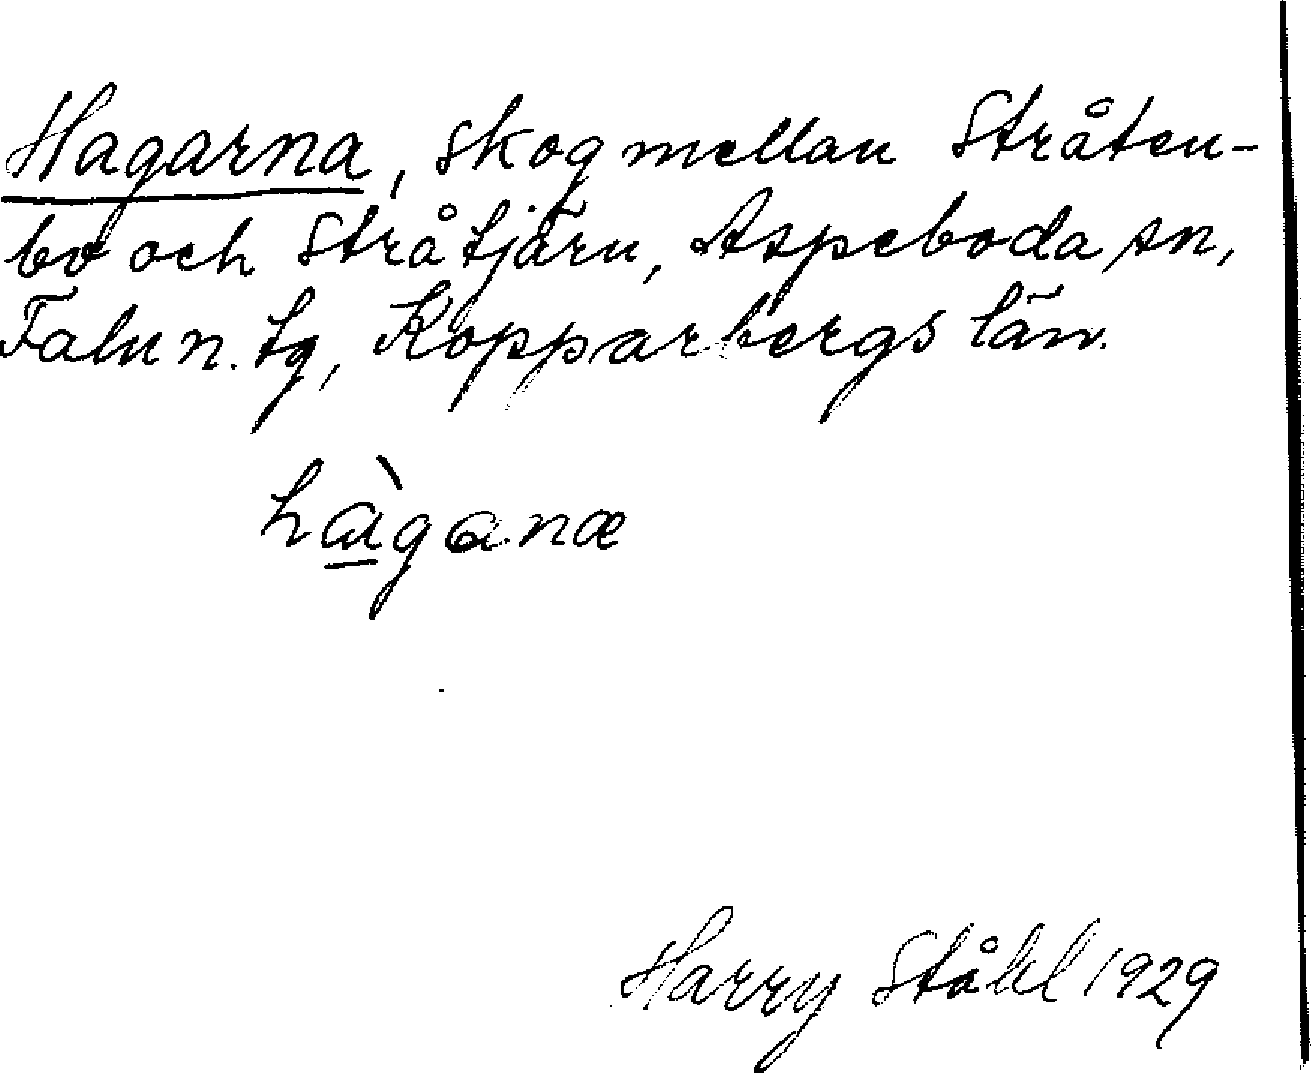 Hagarna, skog mellan Stråten-
bo och Stråtjärn, Aspeboda sn,
Falu n. tg, Kopparbergs län.
hàganæ
Harry Ståhl 1929